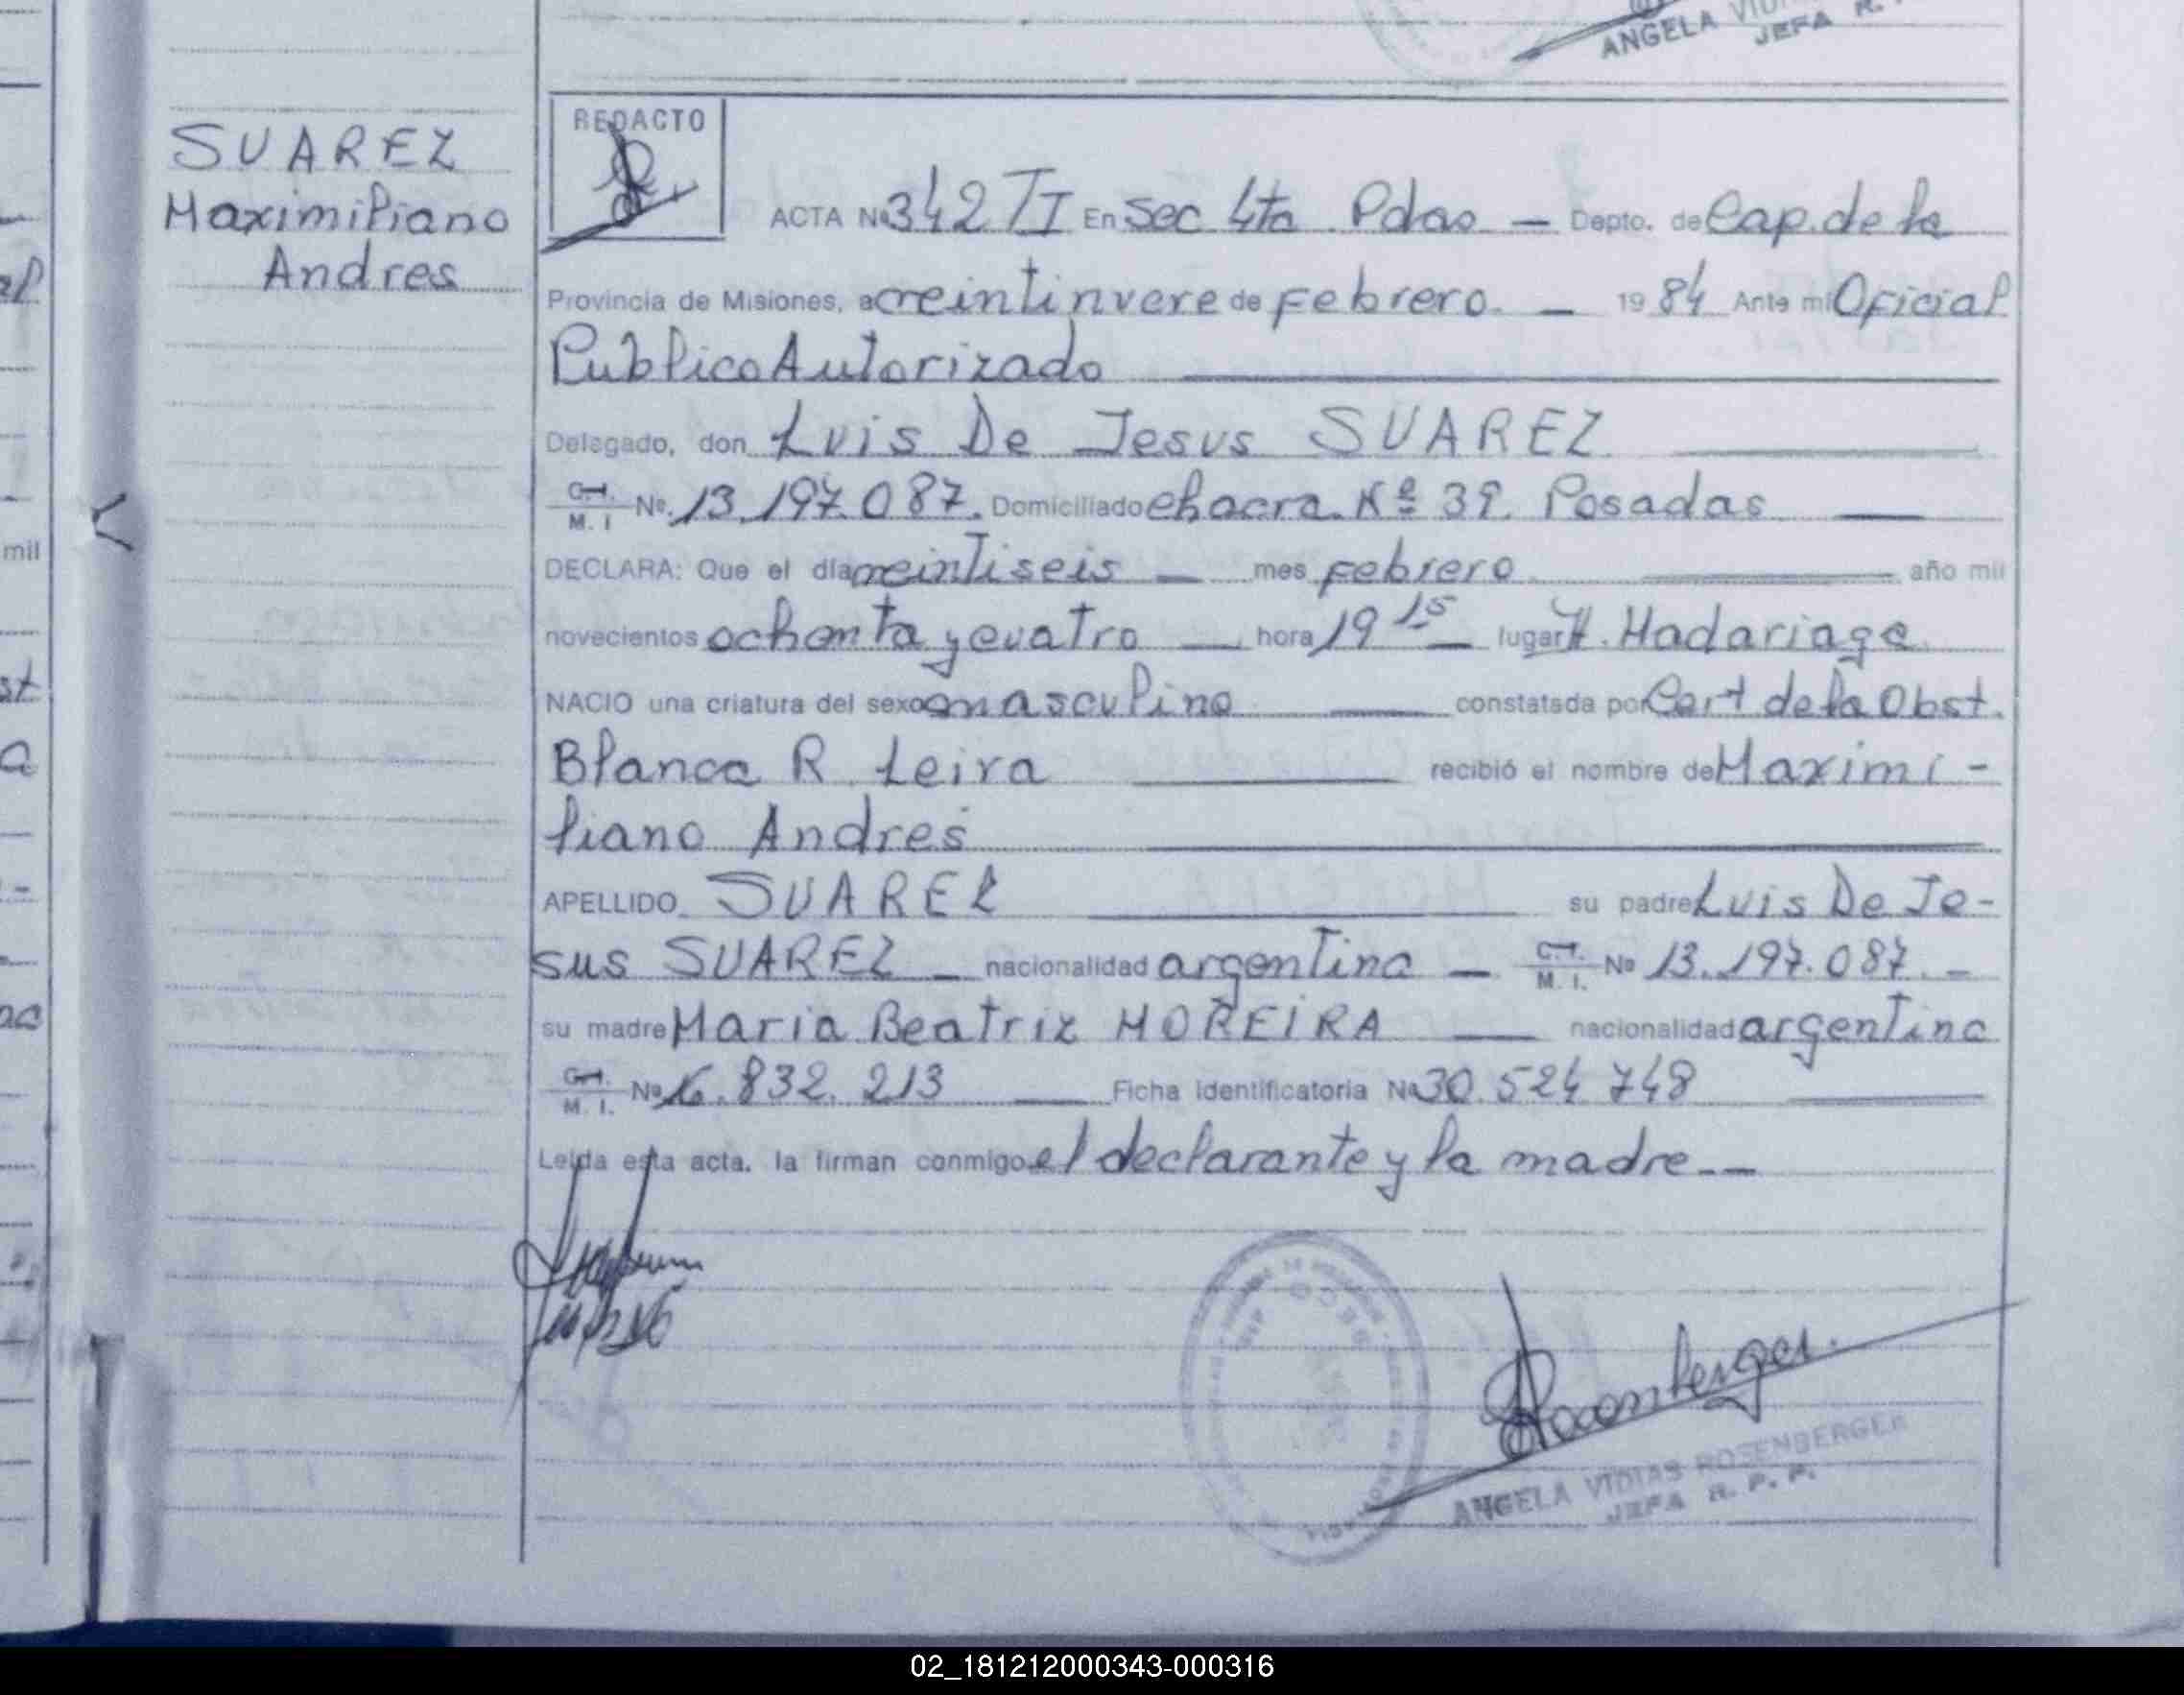 ANGELA
JEFA R.
SUAREZ
Maximiliano
Andres
REDACTO
ACTA Nº 342 TI En Sec 4ta Pdas — Depto. de Cap. de la
Provincia de Misiones, a veintinueve de Febrero. — 1984 Ante mi Oficial
Publico Autorizado
Delegado, don Luis De Jesus SUAREZ
C.I. M. I Nº. 13.197.087. Domiciliado chacra Nº 39. Posadas —
DECLARA: Que el día veintiseis — mes febrero año mil
novecientos ochenta y cuatro — hora 19 15 — lugar H. Madariaga
NACIO una criatura del sexo masculino — constatada por Cert de la Obst.
Blanca R Leiva recibió el nombre de Maximi-
liano Andres
APELLIDO SUAREZ su padre Luis De Je-
sus SUAREZ — nacionalidad argentina — C.I. M. I. Nº 13.197.087. —
su madre Maria Beatriz MOREIRA — nacionalidad argentina
C.I. M. I. Nº 16.832.213 — Ficha Identificatoria Nº 30.524 748
Leida esta acta. la firman conmigo el declarante y la madre. —
Rosenberger.
ANGELA VIDIAS ROSENBERGER
JEFA R. P. P.
mil
st
a
02_181212000343-000316